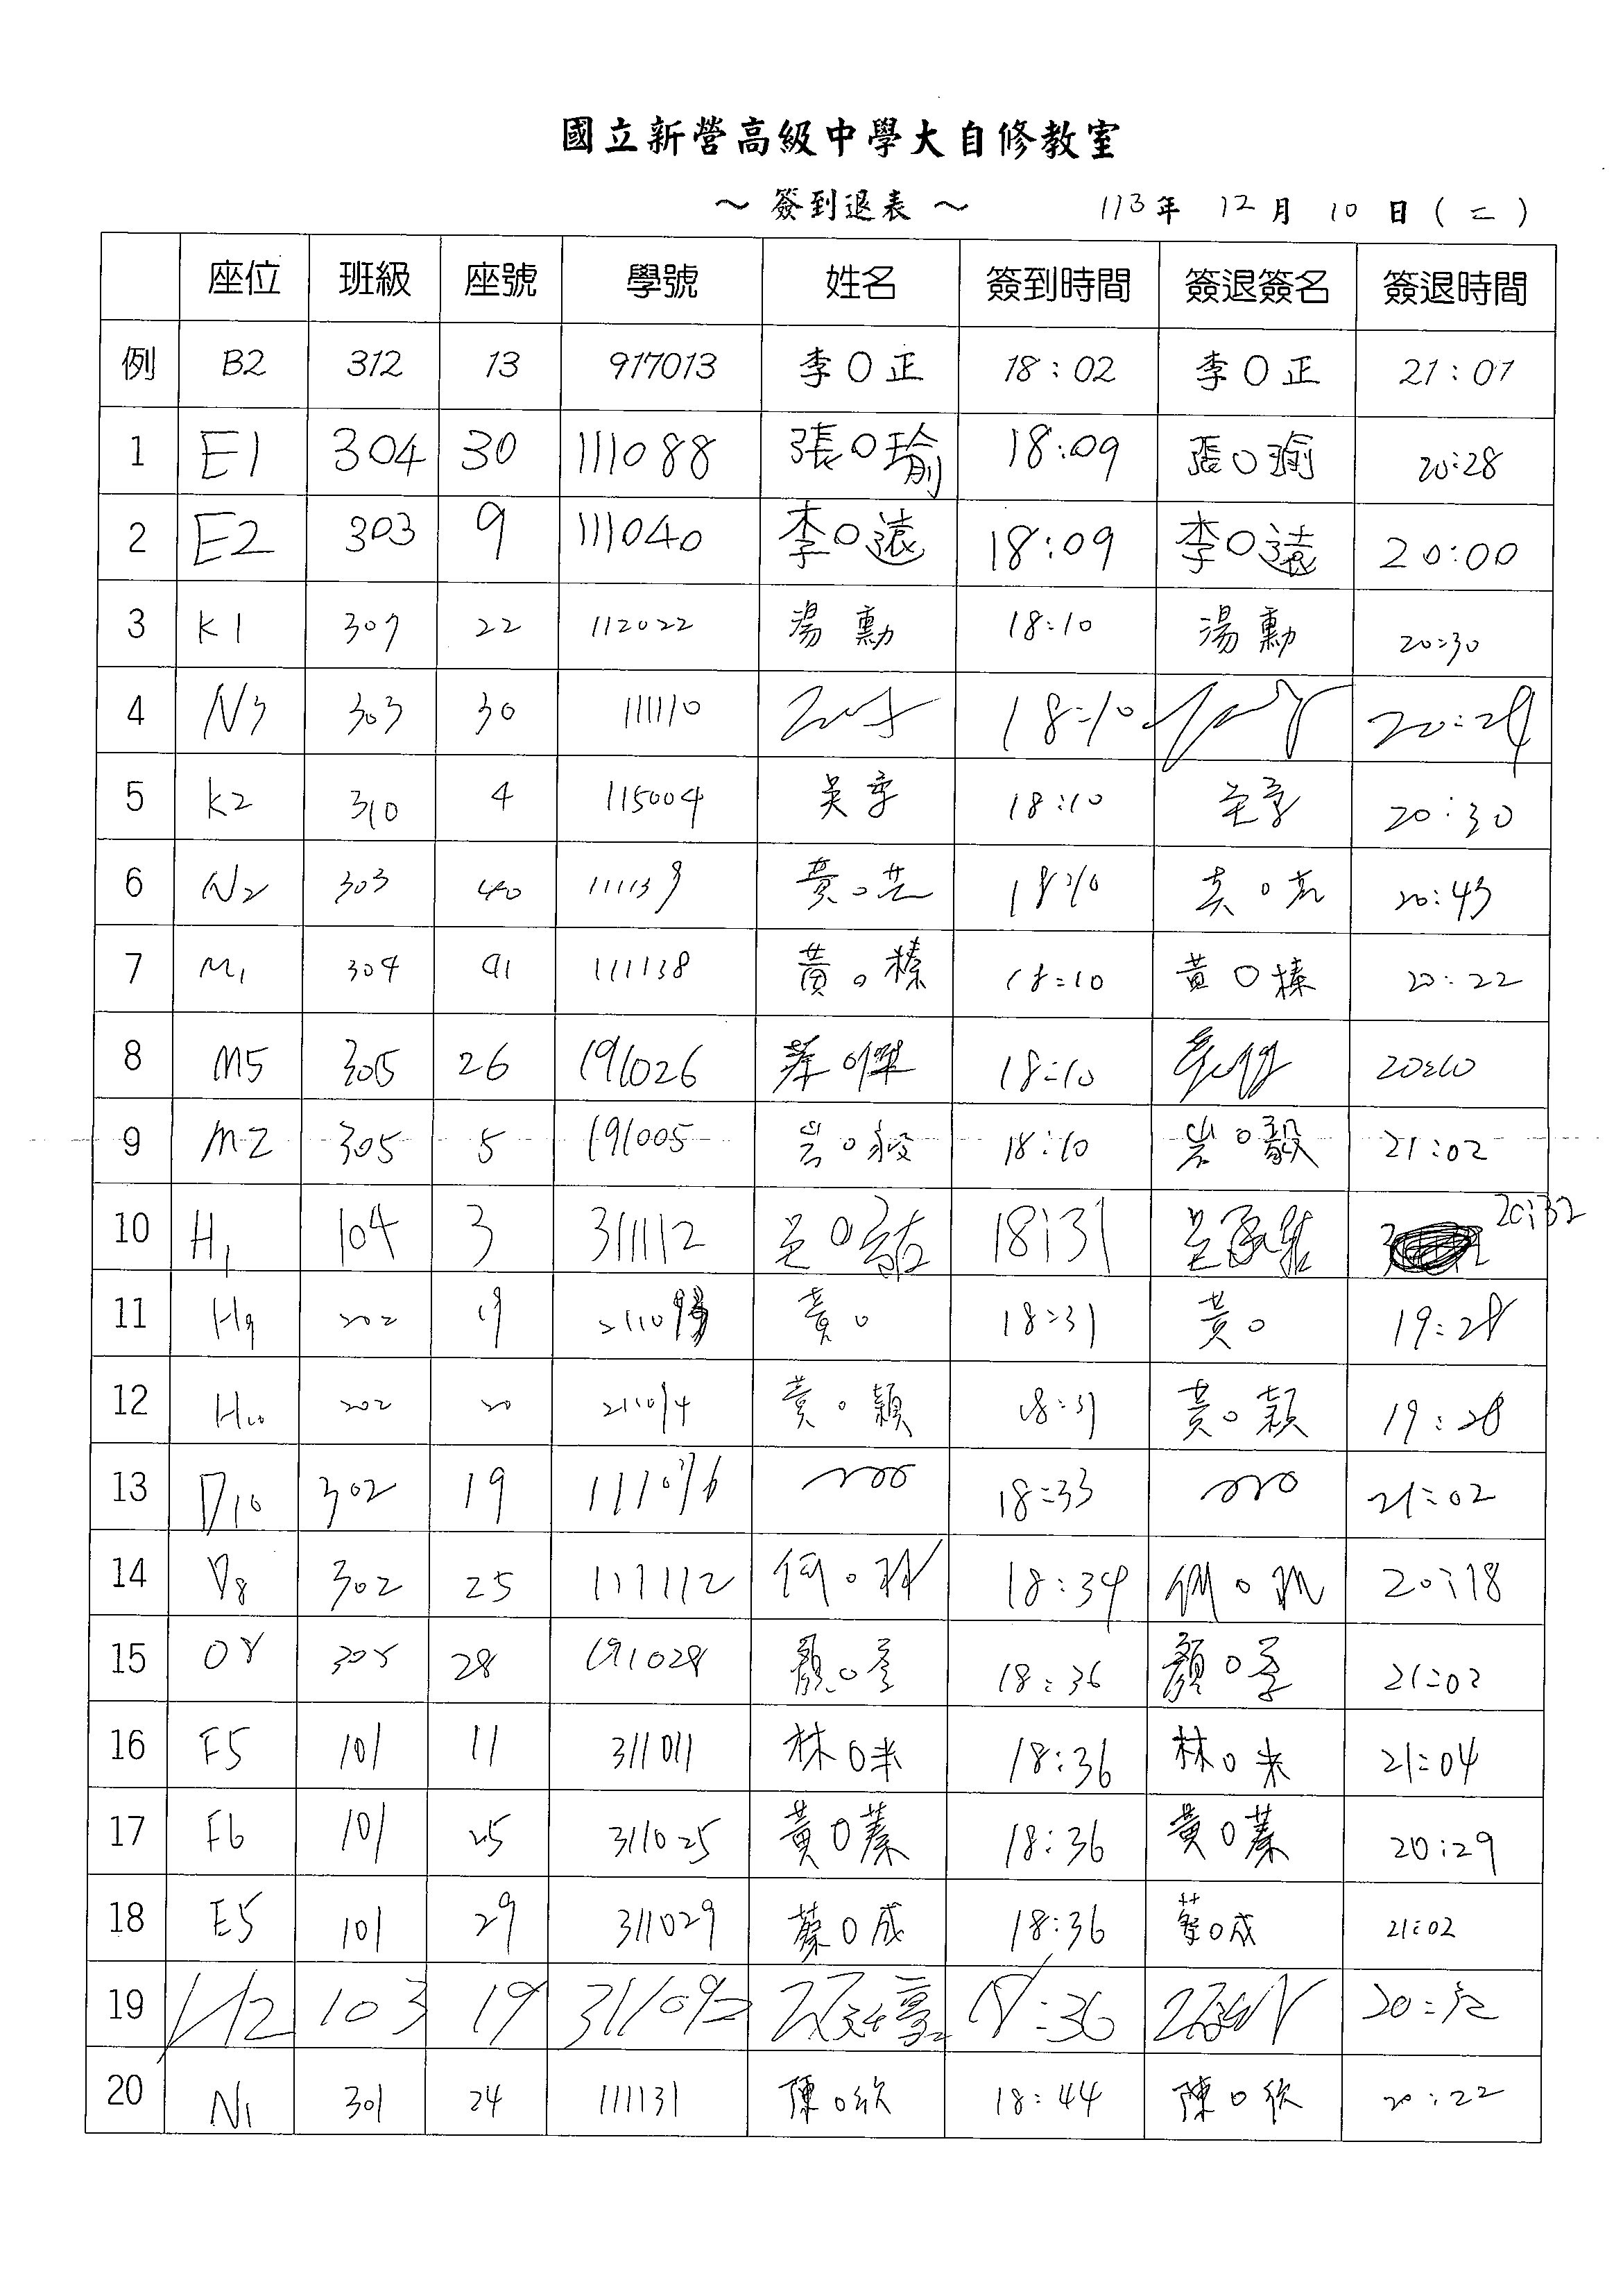 國立新營高級中學大自修教室
～ 簽到退表 ～ 113年 12月 10日(二)
座位 班級 座號 學號 姓名 簽到時間 簽退簽名 簽退時間
例 B2 312 13 917013 李O正 18:02 李O正 21:01
1 E1 304 30 111088 張O瑜 18:09 張O瑜 20:28
2 E2 303 9 111040 李O遠 18:09 李O遠 20:00
3 K1 307 22 112022 湯勳 18:10 湯勳 20:30
4 N3 303 30 111110 18:10 20:24
5 K2 310 4 115004 吳季 18:10 20:30
6 N2 303 40 111139 黃O芸 18:10 20:43
7 M1 304 41 111138 黃O榛 18:10 黃O榛 20:22
8 M5 305 26 191026 18:10 20:10
9 M2 305 5 191005 18:10 21:02
10 H1 104 3 311112 18:31 20:32
11 H9 202 19 黃O 18:31 黃O 19:28
12 H10 202 20 211014 黃O穎 18:31 黃O穎 19:28
13 D10 302 19 111076 18:33 21:02
14 D8 302 25 111112 何O 18:34 20:18
15 O8 305 28 191028 顏O 18:36 顏O 21:02
16 F5 101 11 311011 林O 18:36 林O 21:04
17 F6 101 25 311025 黃O蓁 18:36 黃O蓁 20:29
18 E5 101 29 311029 蔡O成 18:36 蔡O成 21:02
19 H2 103 19 311092 18:36
20 N1 301 24 111131 陳O欣 18:44 陳O欣 20:22